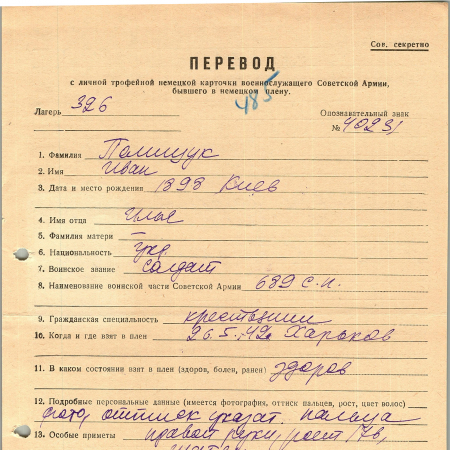 Сов. секретно
ПЕРЕВОД
с личной трофейной немецкой карточки военнослужащего Советской Армии,
бывшего в немецком плену.
485
Лагерь 326
Опознавательный знак
№ 40231
1. Фамилия Полищук
2. Имя Иван
3. Дата и место рождения 1898 Киев
4. Имя отца Илье
5. Фамилия матери —
6. Национальность укр.
7. Воинское звание солдат
8. Наименование воинской части Советской Армии 689 с.п.
9. Гражданская специальность крестьянин
10. Когда и где взят в плен 26.5.42г Харьков
11. В каком состоянии взят в плен (здоров, болен, ранен) здоров
12. Подробные персональные данные (имеется фотография, оттиск пальцев, рост, цвет волос)
фото, оттиск указат. пальца
13. Особые приметы правой руки, рост